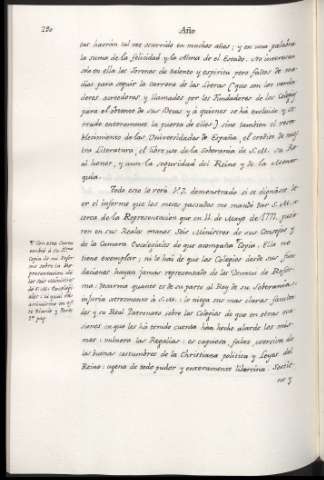 250
Año
tas harán tal vez ocurrido en muchos años; y en una palabra
la suma de la felicidad y la ultima de el Estado. No interesan
solo en ella las Personas de talento y espiritu pero faltas de me-
dios para seguir la carrera de las letras (que son los verda-
deros acredores y llamados por los Fundadores de los Colegios
para el obtento de sus Becas y a quienes se ha excluido y
cerrado enteramente la puerta de ellos), sino tambien el resta-
blecimiento de las Universidades de España, el credito de nuestra
Literatura, el libre uso de la Soberania de S. M. su Re-
al honor, y aun la seguridad del Reyno y de la Monar-
quia.
Todo esto lo verá V. I. demostrado si se dignáre le-
er el informe que los meses pasados me mandó dar S. M. a-
cerca de la Representacion que en 11 de Mayo de 1771. pusie-
ron en sus Reales manos Seis Ministros de sus Consejos y
de la Camara Colegiales de que acompaña Copia. Ella no
tiene exemplar; ni lo hai de que los Colegios desde sus fun-
daciones hayan jamas representado de las Devisas de Refor-
ma: desarma quanto es de su parte al Rey de su Soberania:
injuria atrozmente à S. M.: le niega sus mas claras faculta-
des y su Real Patronato sobre los Colegios de que en otras oca-
siones en que les há tenido cuenta han hecho alarde los mis-
mos: vulnera las Regalias: es capciosa, falsa, subersiva de
las buenas costumbres de la Christiana politica y Leyes del
Reino: agena de todo pudor y enteramente libertina. Sostie-
ne y
¶ Con esta Carta
embió à Su Ilma
Copia de mi Infor-
me sobre la Re-
presentacion de
los Seis Ministros
de S. M. Colegia-
les: la qual va